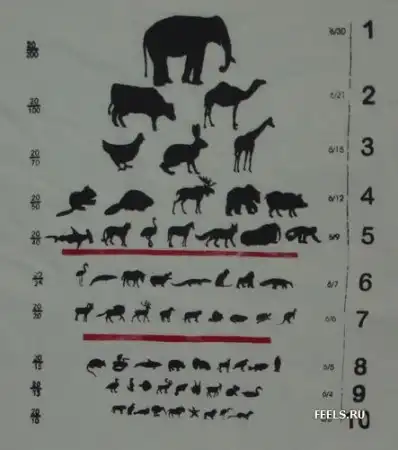 6/30 1
20
100 6/21 2
20
70 6/15 3
20
50 6/12 4
20
40 6/9 5
6/7 6
20
20 6/6 7
20
15 6/5 8
6/4 9
20
10 10
FEELS.RU